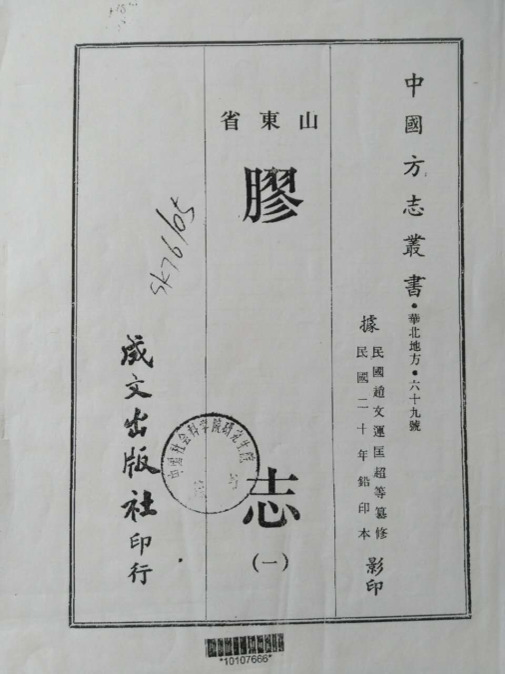 中國方志叢書•華北地方•六十九號
據民國趙文運匡超等纂修
民國二十年鉛印本
影印
山東省
膠志
(一)
成文出版社印行
SK76/05
中国社会科学院研究生院
*10107666*